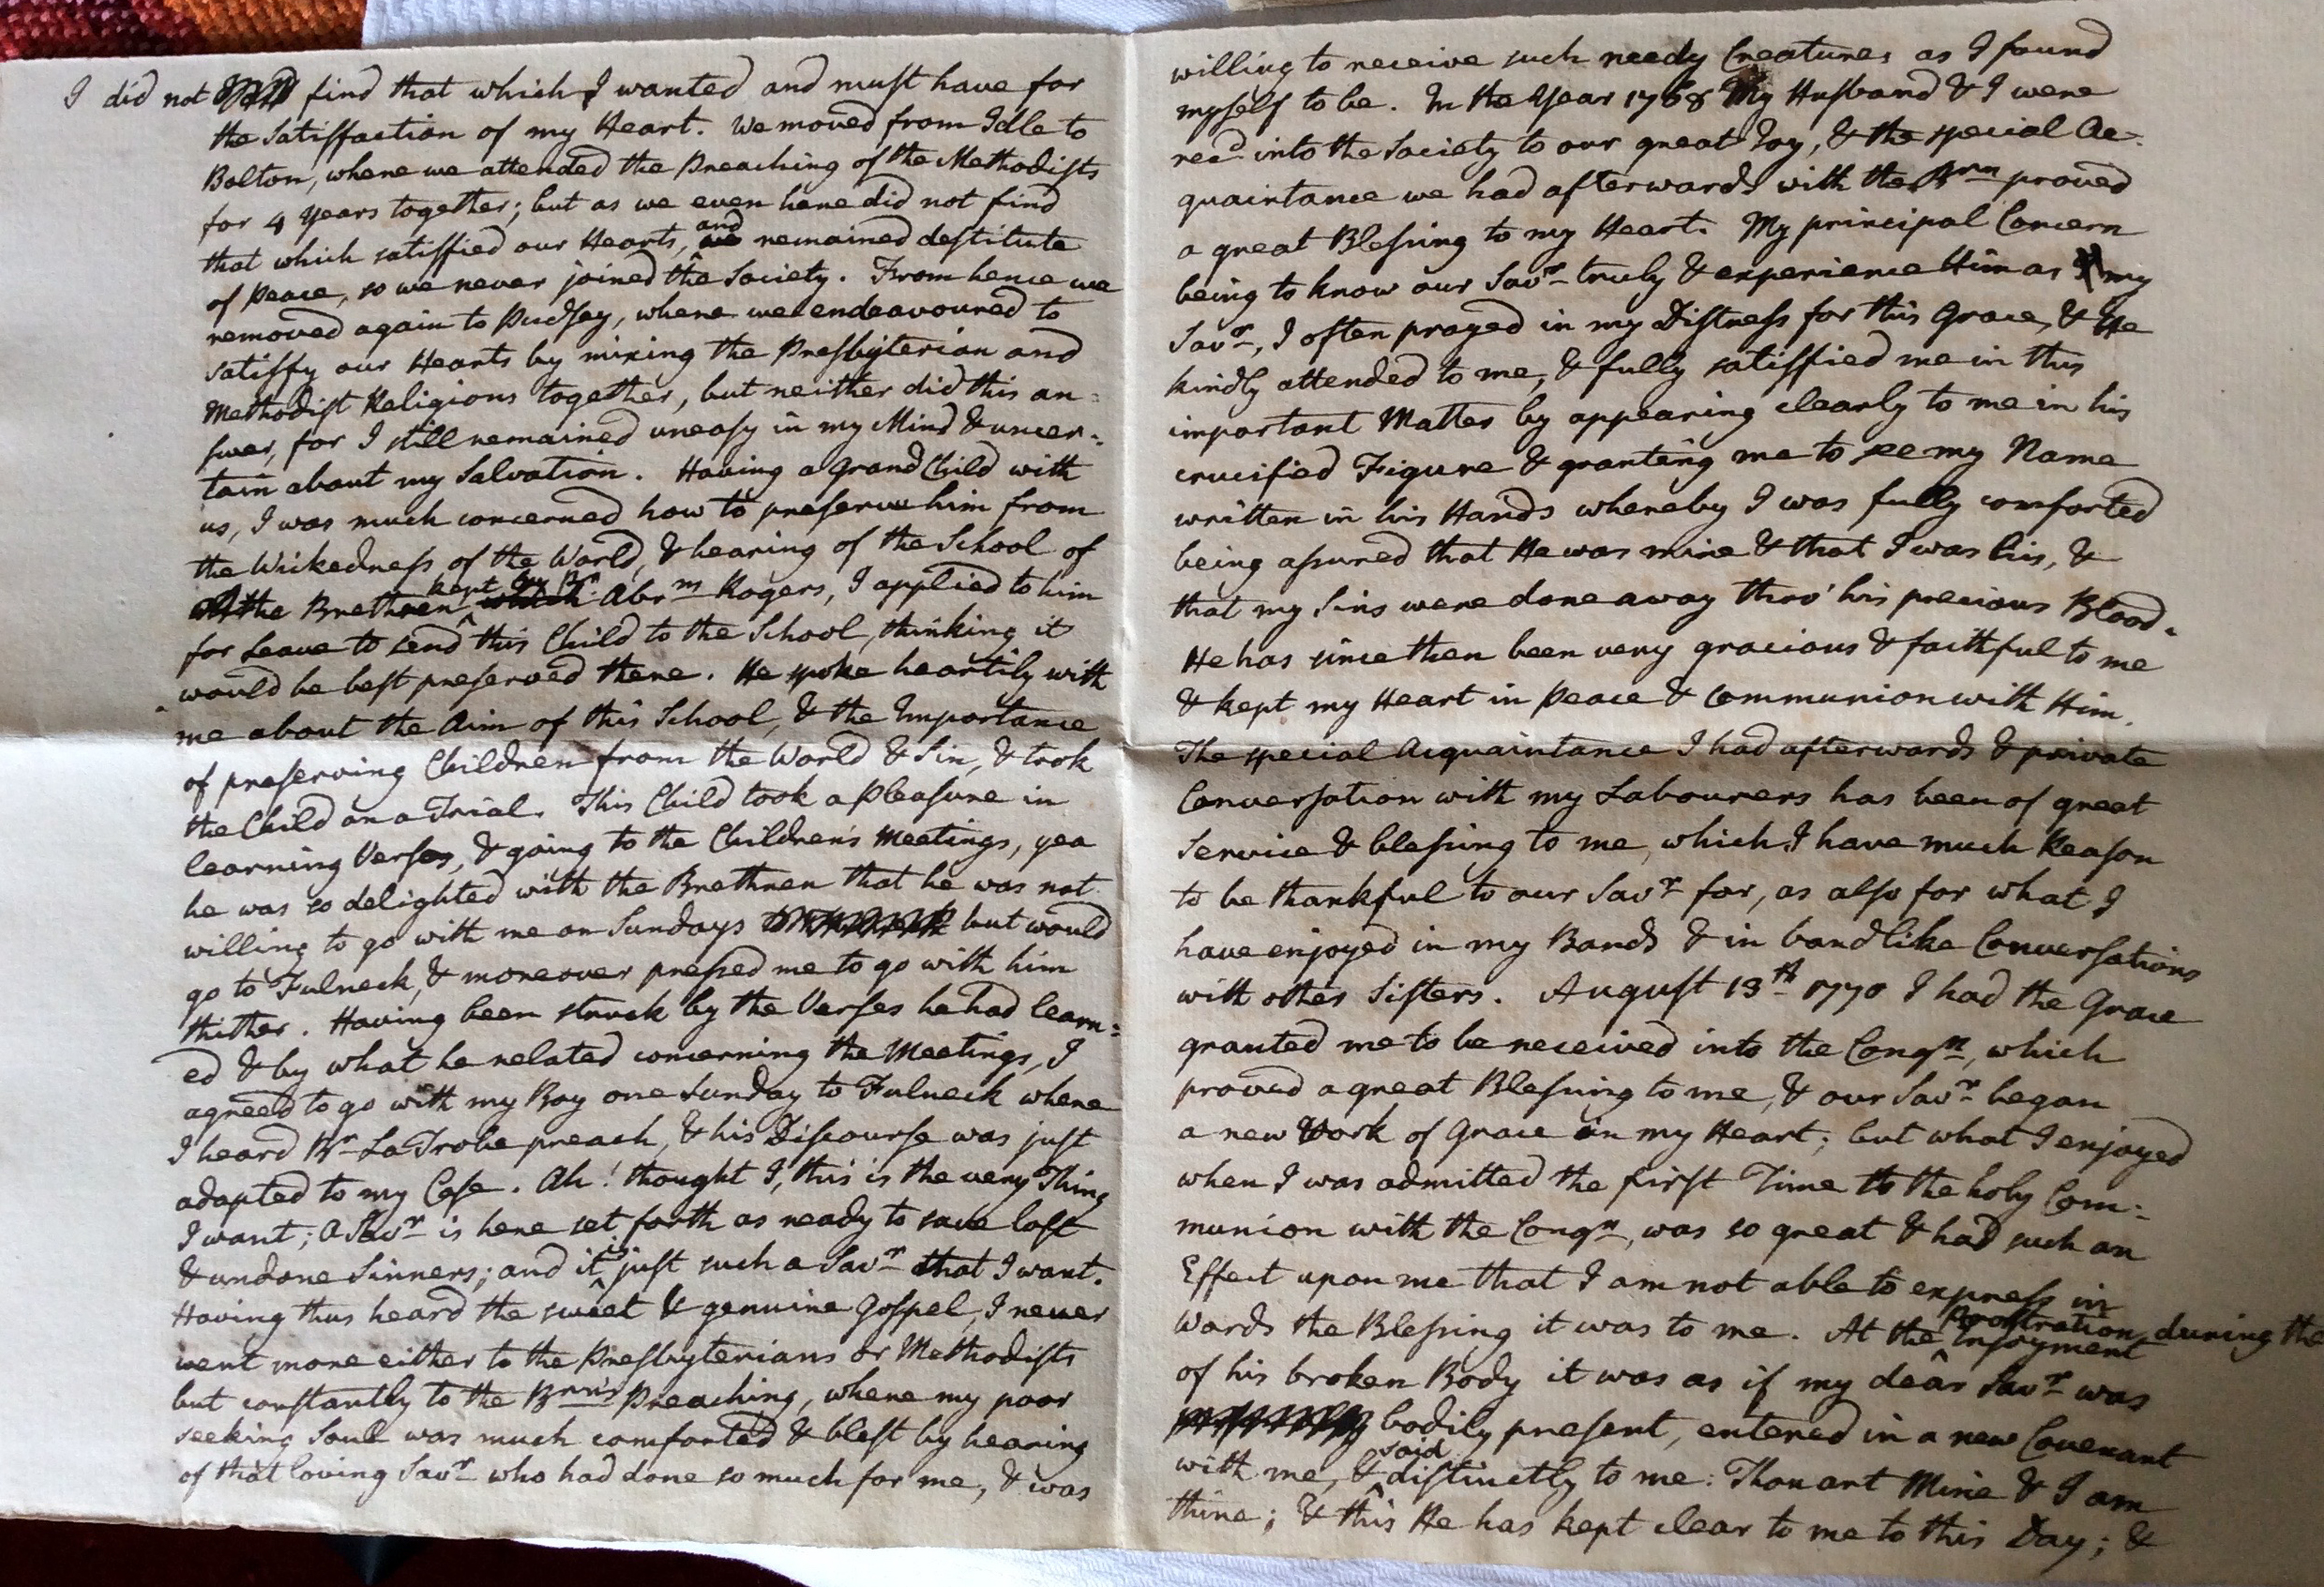 I did not find that which I wanted and must have for
the Satisfaction of my Heart. We moved from Idle to
Bolton, where we attended the Preaching of the Methodists
for 4 Years together; but as we even here did not find
that which satisfied our Hearts, and remained destitute
of Peace, so we never joined the Society. From hence we
removed again to Pudsey, where we endeavoured to
satisfy our Hearts by mixing the Presbyterian and
Methodist Religions together, but neither did this an=
swer, for I still remained uneasy in my Mind & uncer=
tain about my Salvation. Having a Grand Child with
us, I was much concerned how to preserve him from
the Wickedness of the World, & hearing of the School of
the Brethren kept by Br. Abrm Rogers, I applied to him
for Leave to send this Child to the School, thinking it
would be best preserved there. He spoke heartily with
me about the Aim of this School, & the Importance
of preserving Children from the World & Sin, & took
the Child on a Trial. This Child took a Pleasure in
learning Verses, & going to the Children's Meetings, yea
he was so delighted with the Brethren that he was not
willing to go with me on Sundays but would
go to Fulneck, & moreover pressed me to go with him
thither. Having been struck by the Verses he had learn=
ed & by what he related concerning the Meetings, I
agreed to go with my Boy one Sunday to Fulneck where
I heard Br La Trobe preach, & his Discourse was just
adapted to my Case. Ah! thought I, this is the very Thing
I want; a Savr is here set forth as ready to save lost
& undone Sinners; and it is just such a Savr that I want.
Having thus heard the sweet & genuine Gospel, I never
went more either to the Presbyterians or Methodists
but constantly to the Brn's Preaching, where my poor
seeking Soul was much comforted & blest by hearing
of that loving Savr who had done so much for me, & was
willing to receive such needy Creatures as I found
myself to be. In the Year 1768 My Husband & I were
recd into the Society to our great Joy, & the special Ac=
quaintance we had afterwards with the Brn proved
a great Blessing to my Heart. My principal Concern
being to know our Savr truly & experience Him as my
Savr, I often prayed in my Distress for this Grace, & He
kindly attended to me, & fully satisfied me in this
important Matter by appearing clearly to me in his
crucified Figure & granting me to see my Name
written in his Hands whereby I was fully comforted
being assured that He was mine & that I was his, &
that my Sins were done away thro' his precious Blood.
He has since then been very gracious & faithful to me
& kept my Heart in Peace & Communion with Him.
The special Acquaintance I had afterwards & private
Conversation with my Labourers has been of great
Service & blessing to me, which I have much Reason
to be thankful to our Savr for, as also for what I
have enjoyed in my Bands & in bandlike Conversations
with other Sisters. August 13th 1770 I had the Grace
granted me to be received into the Congn, which
proved a great Blessing to me, & our Savr began
a new Work of Grace in my Heart; but what I enjoyed
when I was admitted the first Time to the holy Com=
munion with the Congn, was so great & had such an
Effect upon me that I am not able to express in
Words the Blessing it was to me. At the Prostration during the Enjoyment
of his broken Body it was as if my dear Savr was
bodily present, entered in a new Covenant
with me, & said distinctly to me: Thou art Mine & I am
thine; & this He has kept clear to me to this Day; &